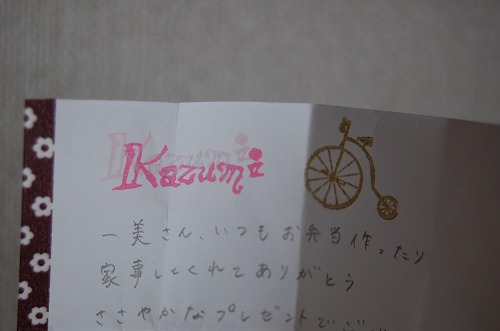 Kazumi
一美さん、いつもお弁当作ったり
家事してくれてありがとう
ささやかなプレゼントで